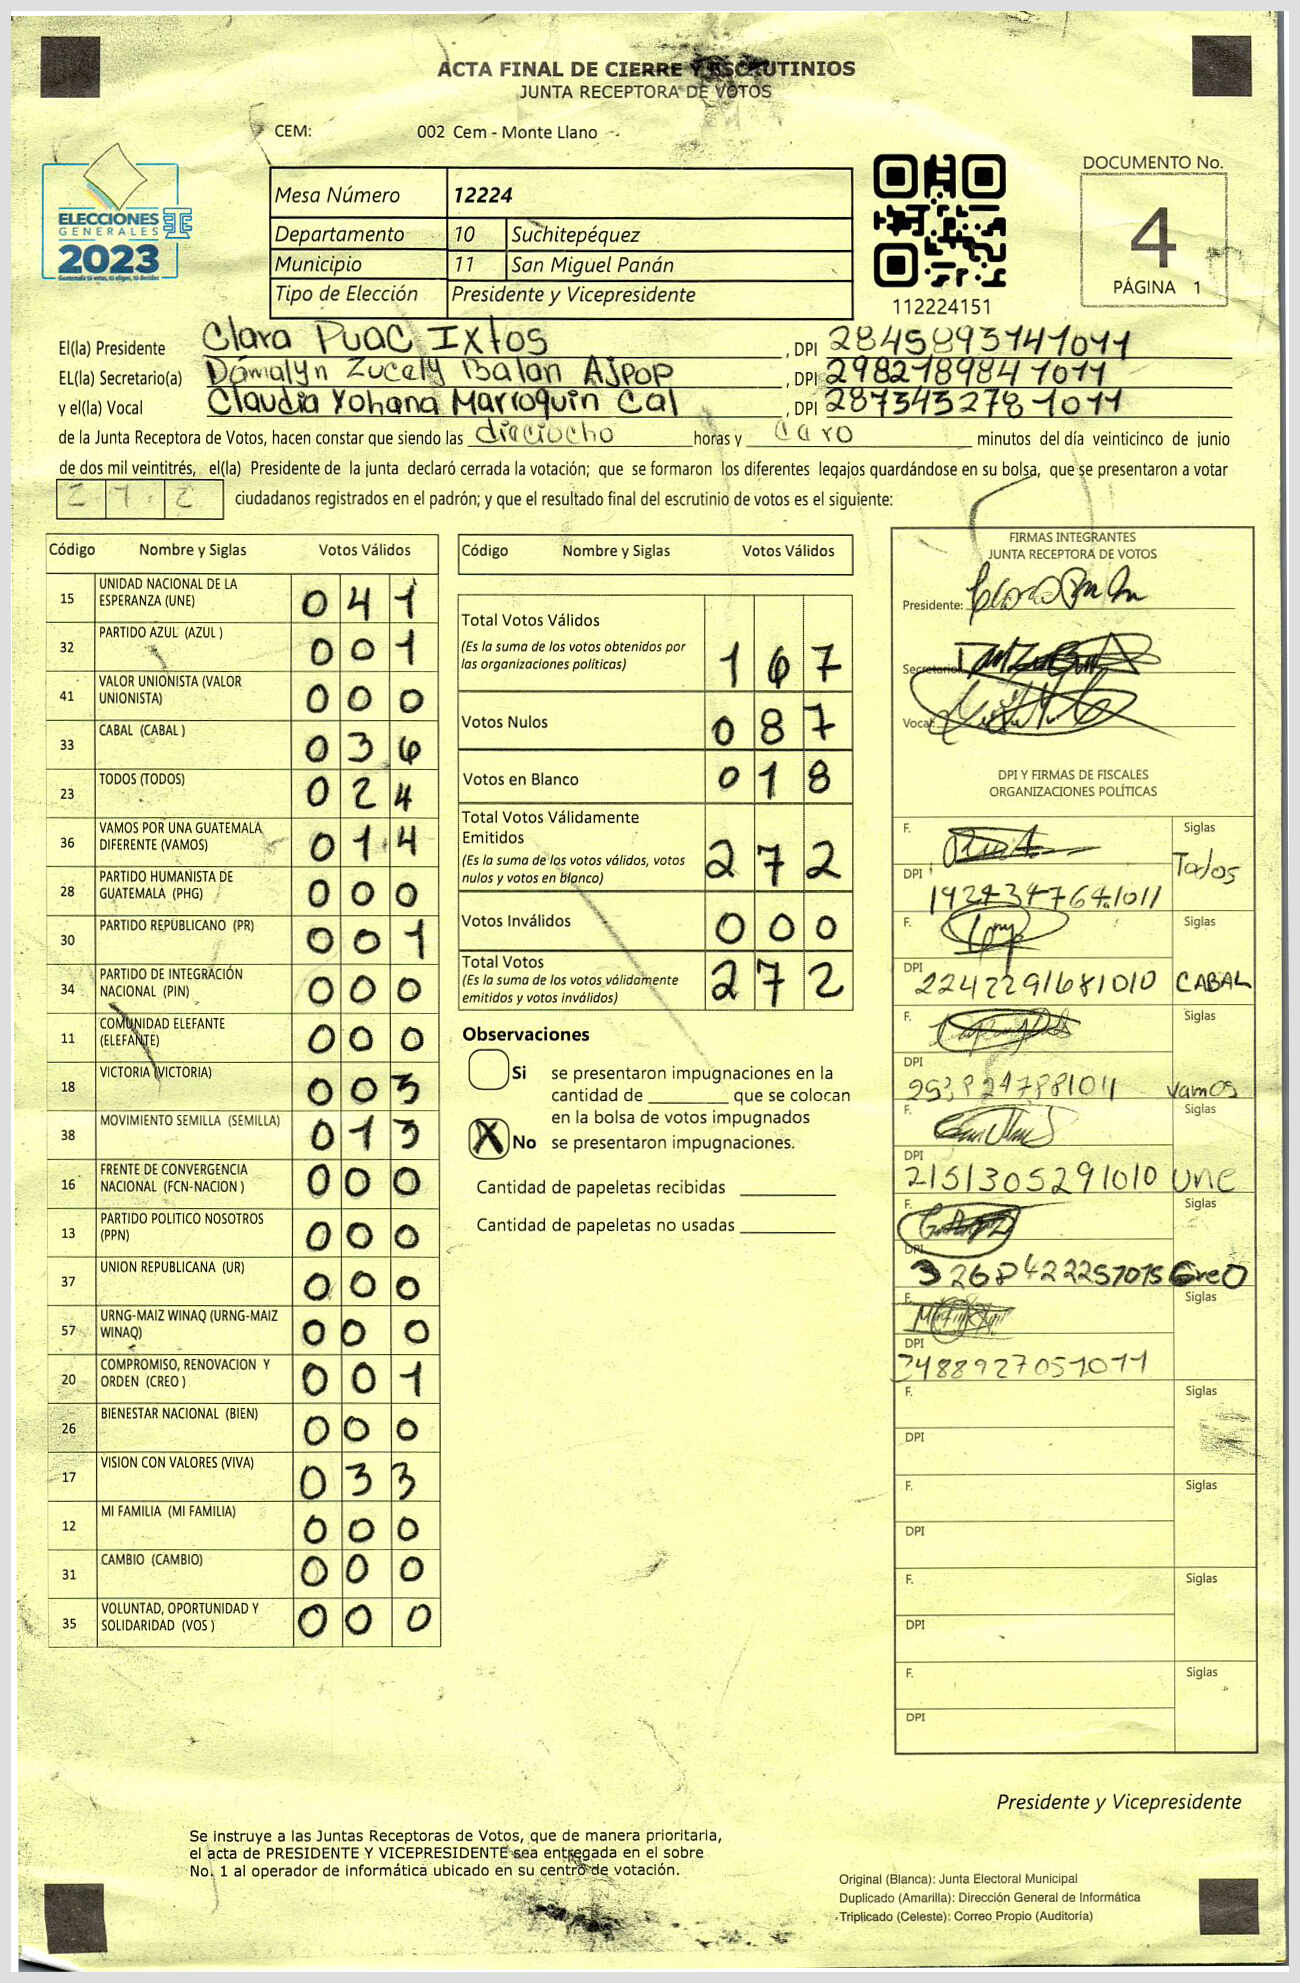 ACTA FINAL DE CIERRE Y ESCRUTINIOS
JUNTA RECEPTORA DE VOTOS
CEM: 002 Cem - Monte Llano
ELECCIONES
GENERALES
2023
Mesa Número 12224
Departamento 10 Suchitepéquez
Municipio 11 San Miguel Panán
Tipo de Elección Presidente y Vicepresidente
112224151
DOCUMENTO No.
4
PÁGINA 1
El(la) Presidente Clara Puac Ixtos , DPI 2845893141011
EL(la) Secretario(a) Damalyn Zucely Balan Ajpop , DPI 2982189841011
y el(la) Vocal Claudia Yohana Marroquin Cal , DPI 2873432781011
de la Junta Receptora de Votos, hacen constar que siendo las dieciocho horas y cero minutos del día veinticinco de junio
de dos mil veintitrés, el(la) Presidente de la junta declaró cerrada la votación; que se formaron los diferentes legajos guardándose en su bolsa, que se presentaron a votar
272 ciudadanos registrados en el padrón; y que el resultado final del escrutinio de votos es el siguiente:
Código Nombre y Siglas Votos Válidos
15 UNIDAD NACIONAL DE LA ESPERANZA (UNE) 041
32 PARTIDO AZUL (AZUL ) 001
41 VALOR UNIONISTA (VALOR UNIONISTA) 000
33 CABAL (CABAL ) 036
23 TODOS (TODOS) 024
36 VAMOS POR UNA GUATEMALA DIFERENTE (VAMOS) 014
28 PARTIDO HUMANISTA DE GUATEMALA (PHG) 000
30 PARTIDO REPUBLICANO (PR) 001
34 PARTIDO DE INTEGRACIÓN NACIONAL (PIN) 000
11 COMUNIDAD ELEFANTE (ELEFANTE) 000
18 VICTORIA (VICTORIA) 003
38 MOVIMIENTO SEMILLA (SEMILLA) 013
16 FRENTE DE CONVERGENCIA NACIONAL (FCN-NACION ) 000
13 PARTIDO POLITICO NOSOTROS (PPN) 000
37 UNION REPUBLICANA (UR) 000
57 URNG-MAIZ WINAQ (URNG-MAIZ WINAQ) 000
20 COMPROMISO, RENOVACION Y ORDEN (CREO ) 001
26 BIENESTAR NACIONAL (BIEN) 000
17 VISION CON VALORES (VIVA) 033
12 MI FAMILIA (MI FAMILIA) 000
31 CAMBIO (CAMBIO) 000
35 VOLUNTAD, OPORTUNIDAD Y SOLIDARIDAD (VOS ) 000
Código Nombre y Siglas Votos Válidos
Total Votos Válidos 167
(Es la suma de los votos obtenidos por
las organizaciones políticas)
Votos Nulos 087
Votos en Blanco 018
Total Votos Válidamente
Emitidos 272
(Es la suma de los votos válidos, votos
nulos y votos en blanco)
Votos Inválidos 000
Total Votos 272
(Es la suma de los votos válidamente
emitidos y votos inválidos)
Observaciones
Si se presentaron impugnaciones en la
cantidad de ________ que se colocan
en la bolsa de votos impugnados
X No se presentaron impugnaciones.
Cantidad de papeletas recibidas
Cantidad de papeletas no usadas
FIRMAS INTEGRANTES
JUNTA RECEPTORA DE VOTOS
Presidente:
Secretario:
Vocal:
DPI Y FIRMAS DE FISCALES
ORGANIZACIONES POLÍTICAS
F. Siglas
DPI 1924347641011 Todos
F. Siglas
DPI 2242291681010 CABAL
F. Siglas
DPI vamos
F. Siglas
DPI 2151305291010 une
F. Siglas
DPI 3268422257015 Creo
F. Siglas
DPI 2488927051011
F. Siglas
DPI
F. Siglas
DPI
F. Siglas
DPI
F. Siglas
DPI
Presidente y Vicepresidente
Se instruye a las Juntas Receptoras de Votos, que de manera prioritaria,
el acta de PRESIDENTE Y VICEPRESIDENTE sea entregada en el sobre
No. 1 al operador de informática ubicado en su centro de votación.
Original (Blanca): Junta Electoral Municipal
Duplicado (Amarilla): Dirección General de Informática
Triplicado (Celeste): Correo Propio (Auditoría)